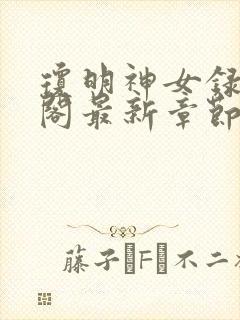 瓊明神女録
閣最新章節
藤子·F·不二